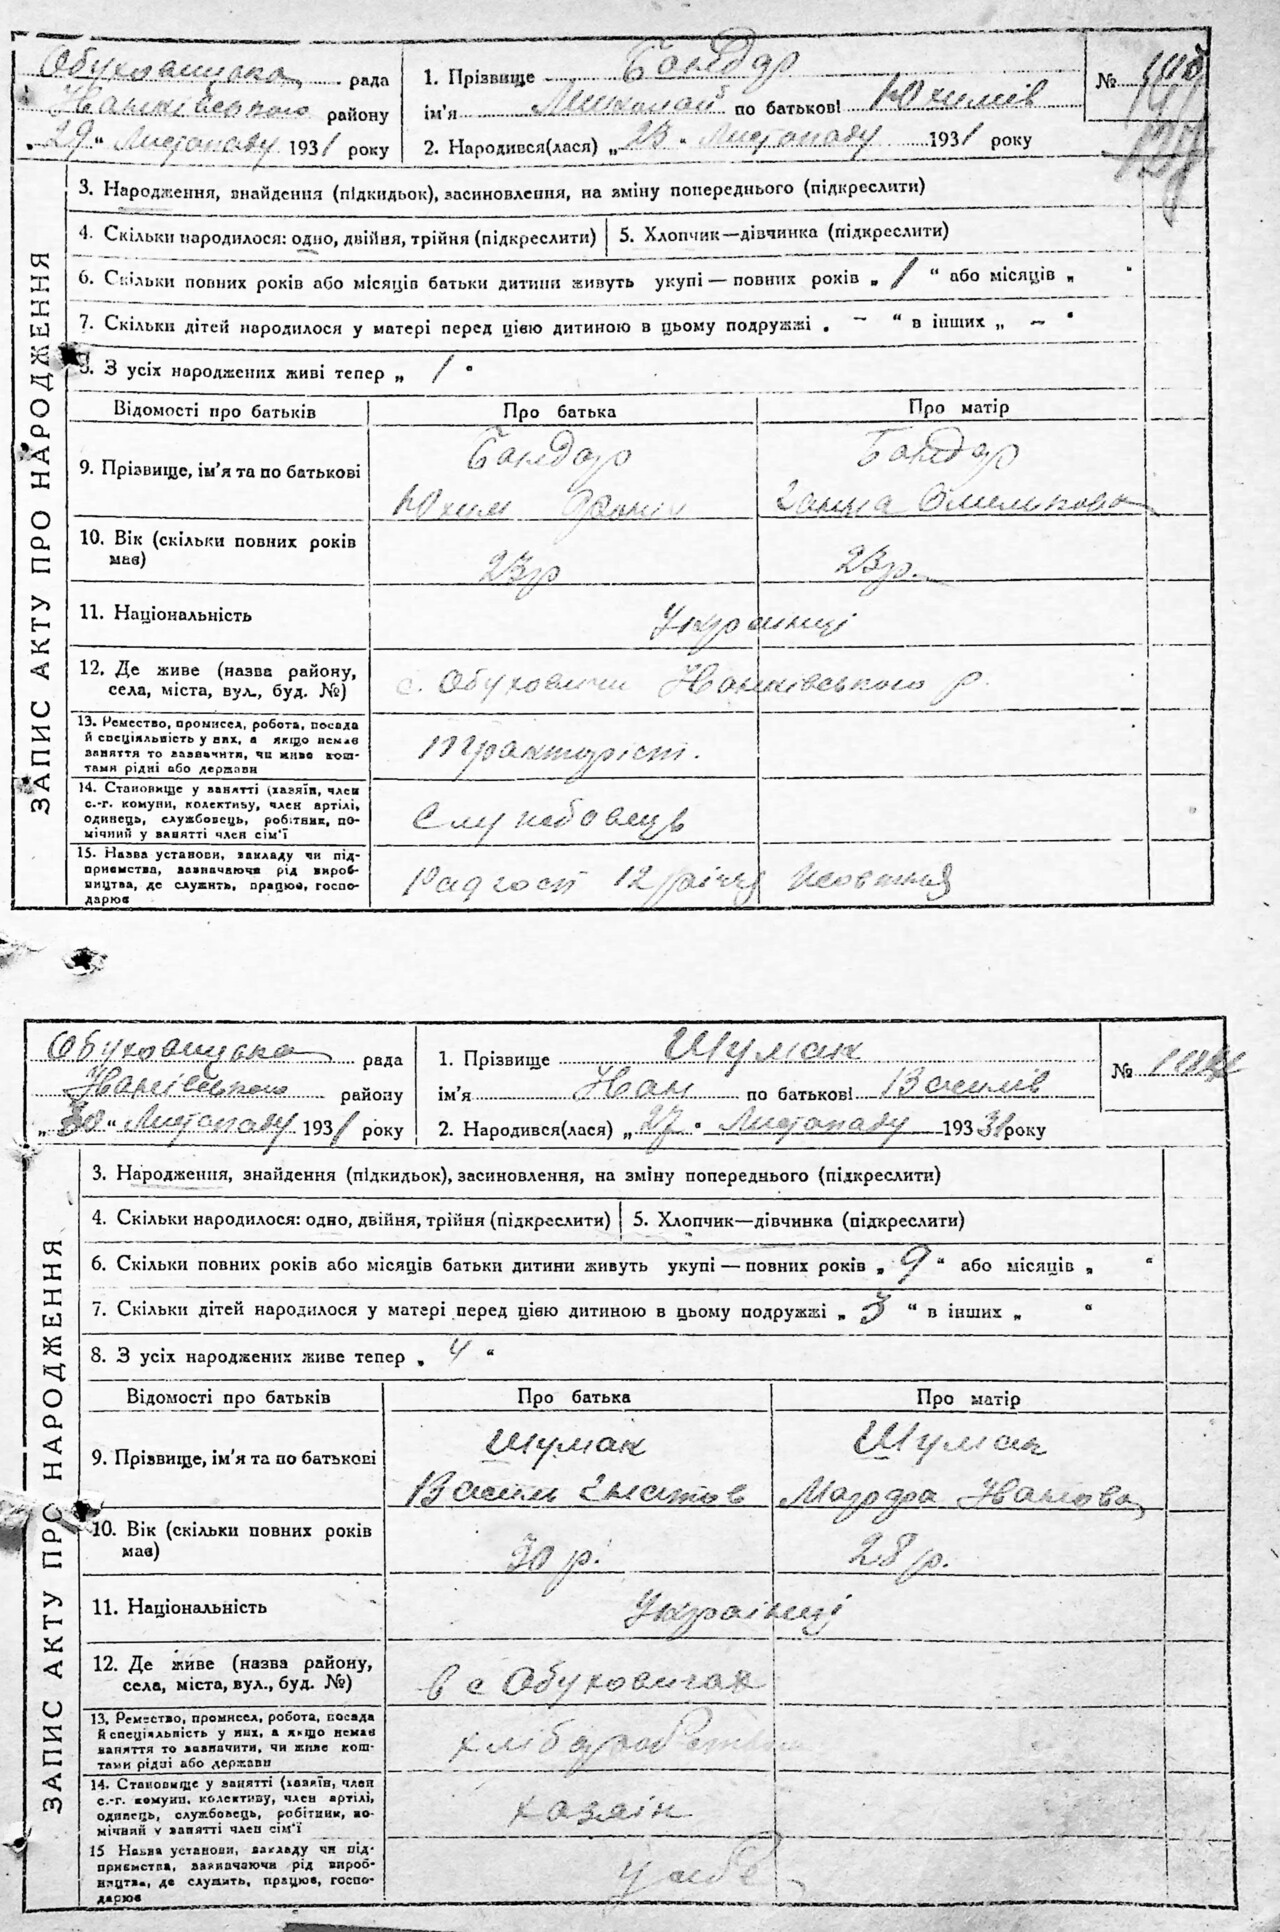 Обуховицька рада
Іванківського району
„29" Листопаду 1931 року
1. Прізвище Бондар
ім'я Миколай по батькові Юхимів
2. Народився(лася) „23" Листопаду 1931 року
№
ЗАПИС АКТУ ПРО НАРОДЖЕННЯ
3. Народження, знайдення (підкидьок), засиновлення, на зміну попереднього (підкреслити)
4. Скільки народилося: одно, двійня, трійня (підкреслити) 5. Хлопчик—дівчинка (підкреслити)
6. Скільки повних років або місяців батьки дитини живуть укупі — повних років „ 1 " або місяців „ "
7. Скільки дітей народилося у матері перед цією дитиною в цьому подружжі „ – " в інших „ – "
8. З усіх народжених живі тепер „ 1 "
Відомості про батьків Про батька Про матір
9. Прізвище, ім'я та по батькові
Бондар Бондар
Юхим Ганна Омелькова
10. Вік (скільки повних років
має)
23р 23р.
11. Національність Українці
12. Де живе (назва району,
села, міста, вул., буд. №)
с. Обуховичи Іванківського р.
13. Ремество, промисел, робота, посада
й спеціяльність у них, а якщо немає
заняття то зазначити, чи живе кош-
тами рідні або держави
тракторіст.
14. Становище у занятті (хазяїн, член
с.-г. комуни, колективу, член артілі,
одинець, службовець, робітник, по-
мічний у занятті член сім'ї
Службовець
15. Назва установи, закладу чи під-
приємства, зазначаючи рід вироб-
ництва, де служить, працює, госпо-
дарює
Радгосп 12 річчя Жовтня
Обуховицька рада
Іванківського району
„30" Листопаду 1931 року
1. Прізвище Шумак
ім'я Іван по батькові Василів
2. Народився(лася) „27" Листопаду 193 31 року
№
ЗАПИС АКТУ ПРО НАРОДЖЕННЯ
3. Народження, знайдення (підкидьок), засиновлення, на зміну попереднього (підкреслити)
4. Скільки народилося: одно, двійня, трійня (підкреслити) 5. Хлопчик—дівчинка (підкреслити)
6. Скільки повних років або місяців батьки дитини живуть укупі — повних років „ 9 " або місяців „ "
7. Скільки дітей народилося у матері перед цією дитиною в цьому подружжі „ 3 " в інших „ "
8. З усіх народжених живе тепер „ 4 "
Відомості про батьків Про батька Про матір
9. Прізвище, ім'я та по батькові
Шумак Шумак
Василь Гнатов Марфа Іванова
10. Вік (скільки повних років
має)
30 р. 28 р.
11. Національність Українці
12. Де живе (назва району,
села, міста, вул., буд. №)
в с Обуховичах
13. Ремество, промисел, робота, посада
й спеціяльність у них, а якщо немає
заняття то зазначити, чи живе кош-
тами рідні або держави
14. Становище у занятті (хазяїн, член
с.-г. комуни, колективу, член артілі,
одинець, службовець, робітник, по-
мічний у занятті член сім'ї
хазяін
15 Назва установи, закладу чи під-
приємства, зазначаючи рід вироб-
ництва, де служить, працює, госпо-
дарює
у себе